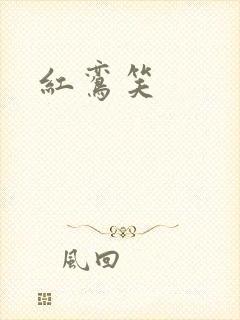 紅鸞笑
風回